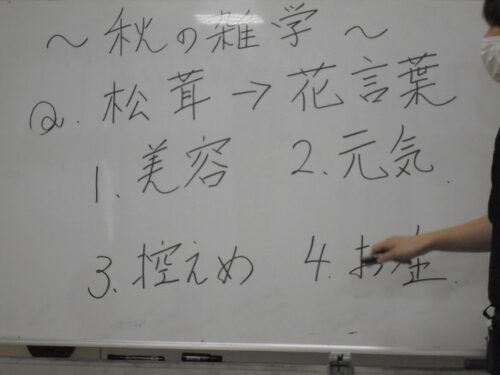 ～秋の雑学～
Q. 松茸→花言葉
1. 美容 2. 元気
3. 控えめ 4. お金